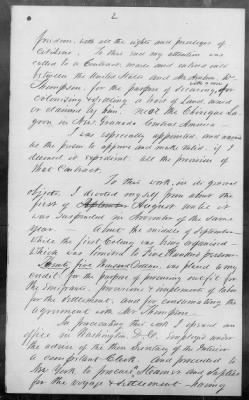 2
freedom, with all the rights and privileges of
Citizens. To this end my attention was
called to a Contract, made and entered into
between the United States and Mr Ambrose W
Thompson, for the purpose of securing, for
colonizing & settling a tract of Land, owned
or claimed by him, near the Chiriqui La-
goon in New Granada Central America.
I was especially appointed, and
as the person to approve and make valid, if I
deemed it expedient all the provision of
that Contract.
To this work, in its general
objects, I devoted myself from about the
first of August until it
was suspended in November of the same
year. About the middle of September
while the first Colony was being organized
which was limited to Five Hundred persons
Twenty five thousand Dollars was placed to my
credit for the purpose of procuring outfit for
the emigrants, Provisions & implements of labor
for the settlement, and for consummating the
agreement with Mr Thompson.
In prosecuting this work I opened an
office in Washington D.C. employed under
the advice of the then Secretary of the Interior
a competent Clerk and proceeded to
New York to procure Steamer and supplies
for the voyage & settlement having